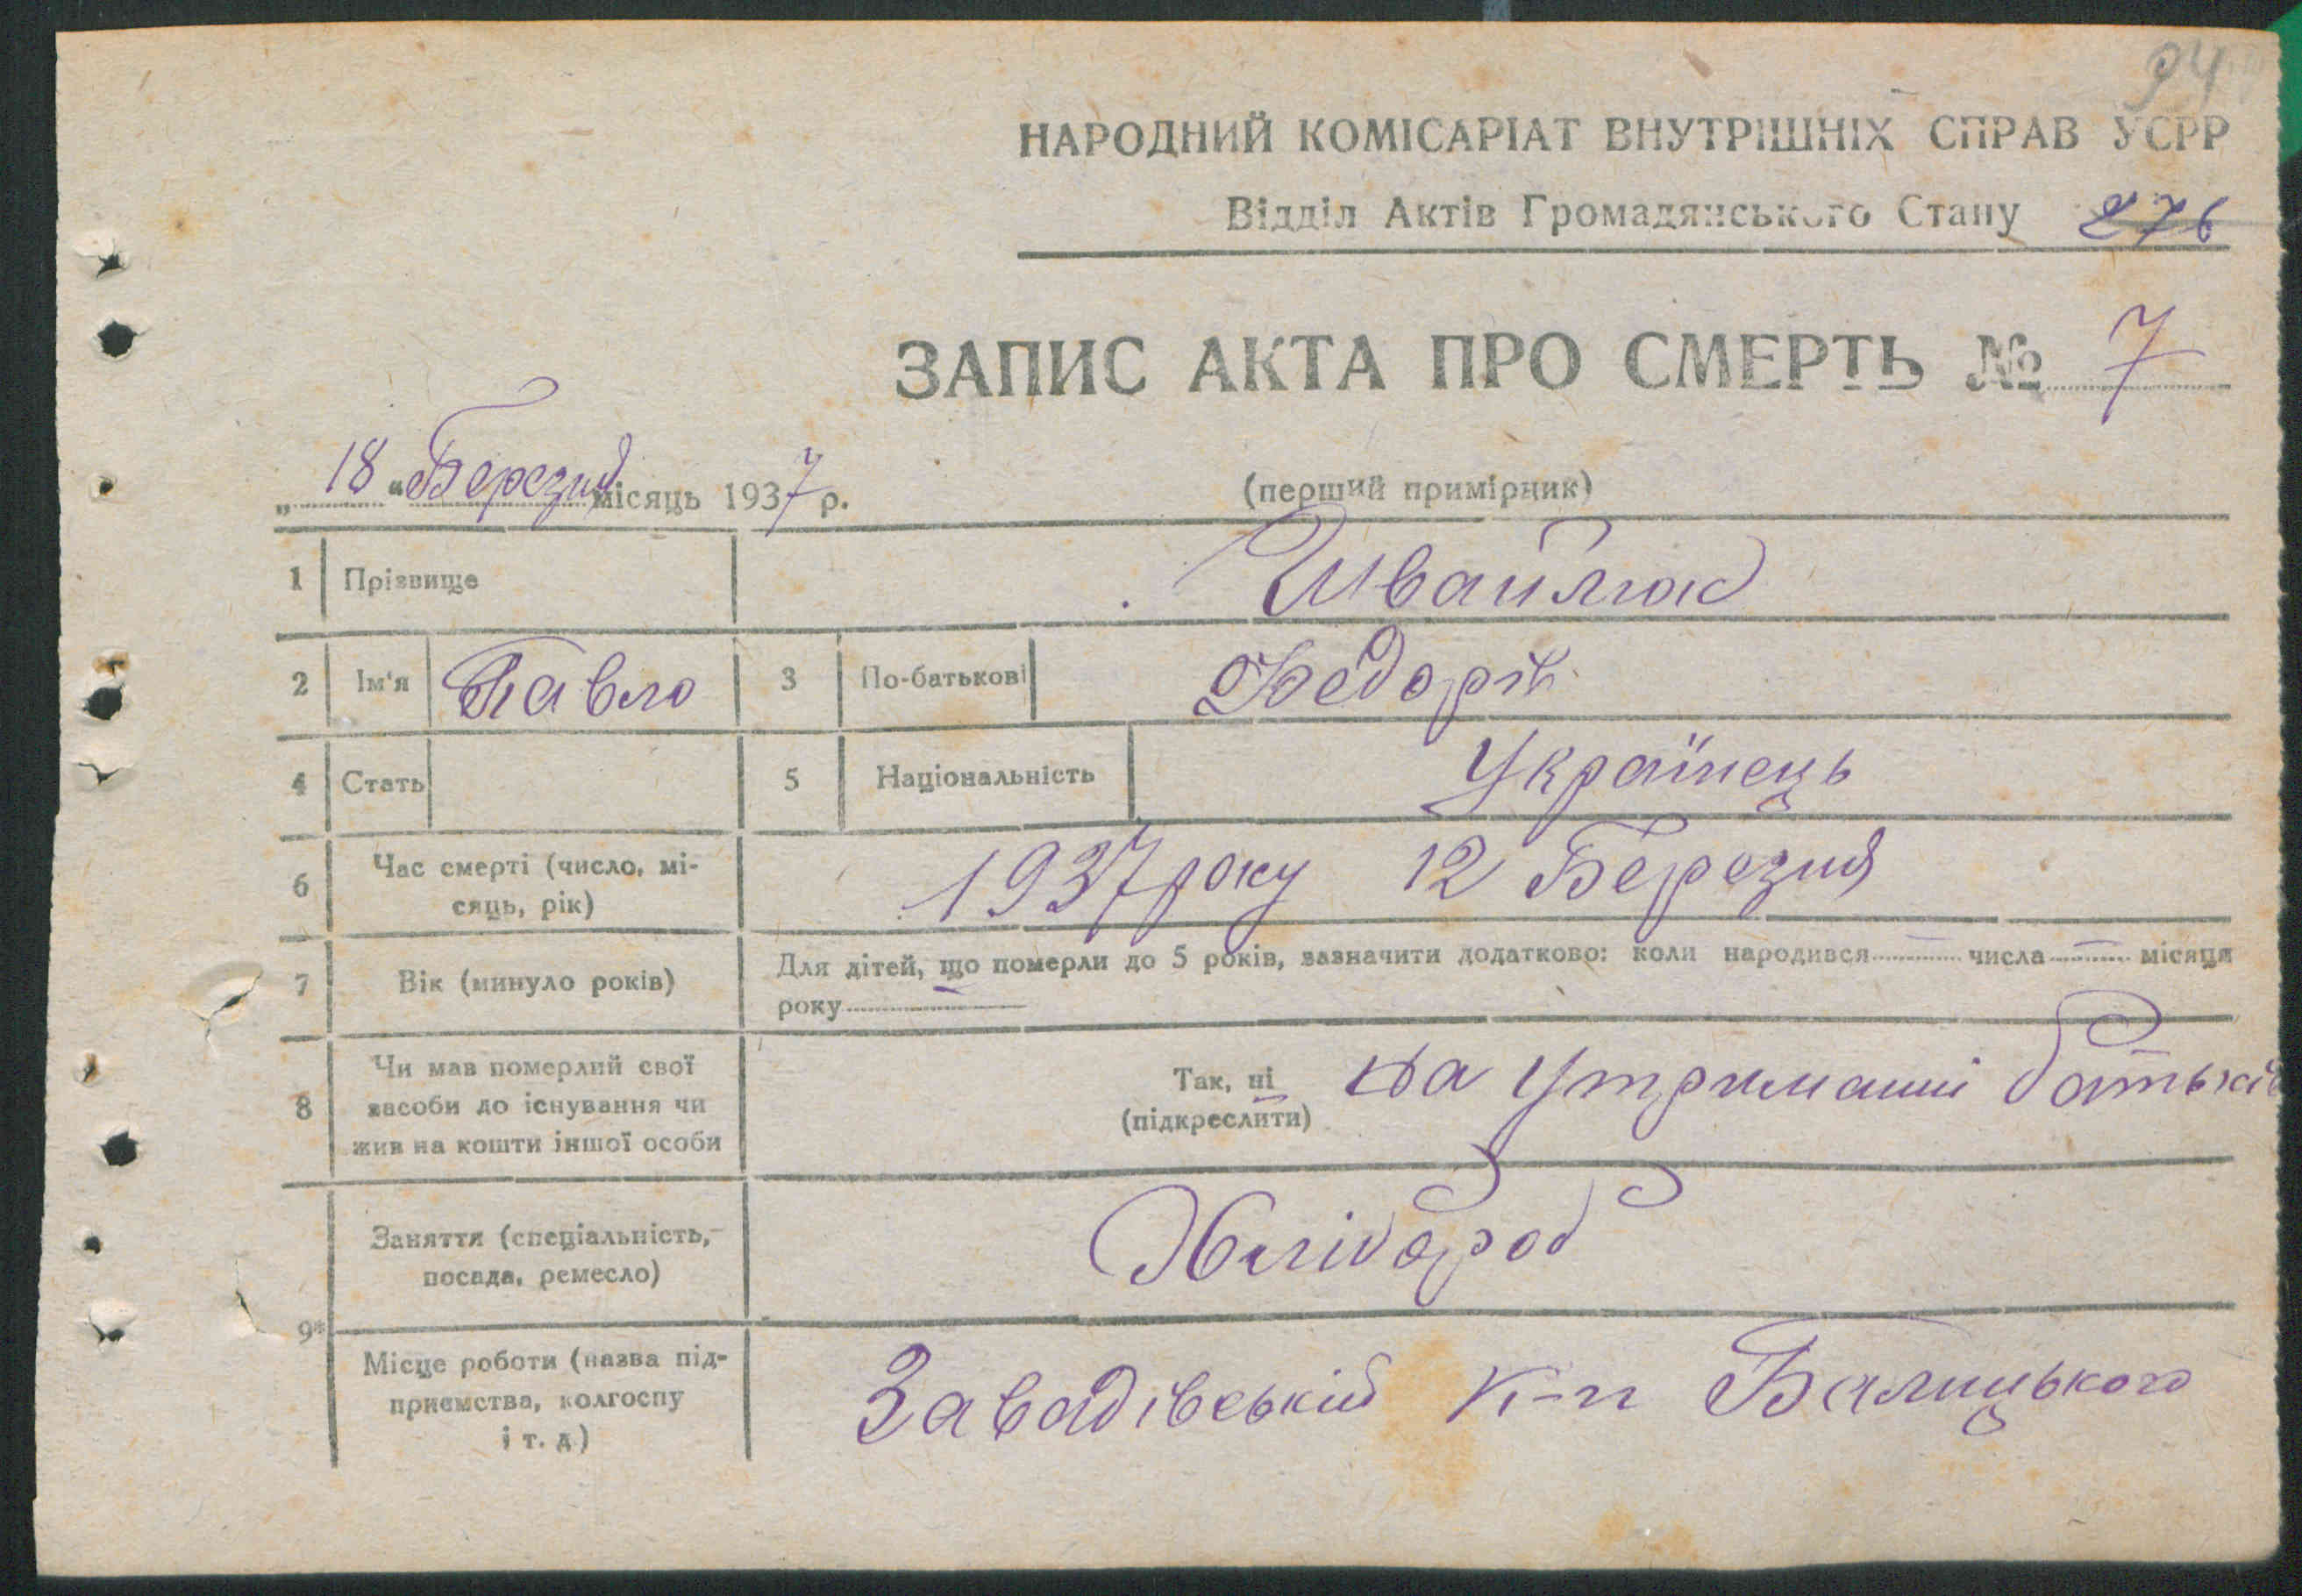 94
НАРОДНИЙ КОМІСАРІАТ ВНУТРІШНІХ СПРАВ УСРР
Відділ Актів Громадянського Стану 276
ЗАПИС АКТА ПРО СМЕРТЬ № 7
„ 18 “ Березня місяць 1937 р.
(перший примірник)
1 Прізвище Швайлюк
2 Ім'я Павло 3 По-батькові Федорів
4 Стать 5 Національність Українець
6 Час смерті (число, мі-
сяць, рік) 1937 року 12 Березня
7 Вік (минуло років) Для дітей, що померли до 5 років, зазначити додатково: коли народився — числа — місяця
року —
8 Чи мав померлий свої
засоби до існування чи
жив на кошти іншої особи
Так, ні
(підкреслити) на утриманні батьків
9* Заняття (спеціальність,
посада, ремесло) Хлібороб
Місце роботи (назва під-
приємства, колгоспу
і т. д.) Завадівський к-п Балицького